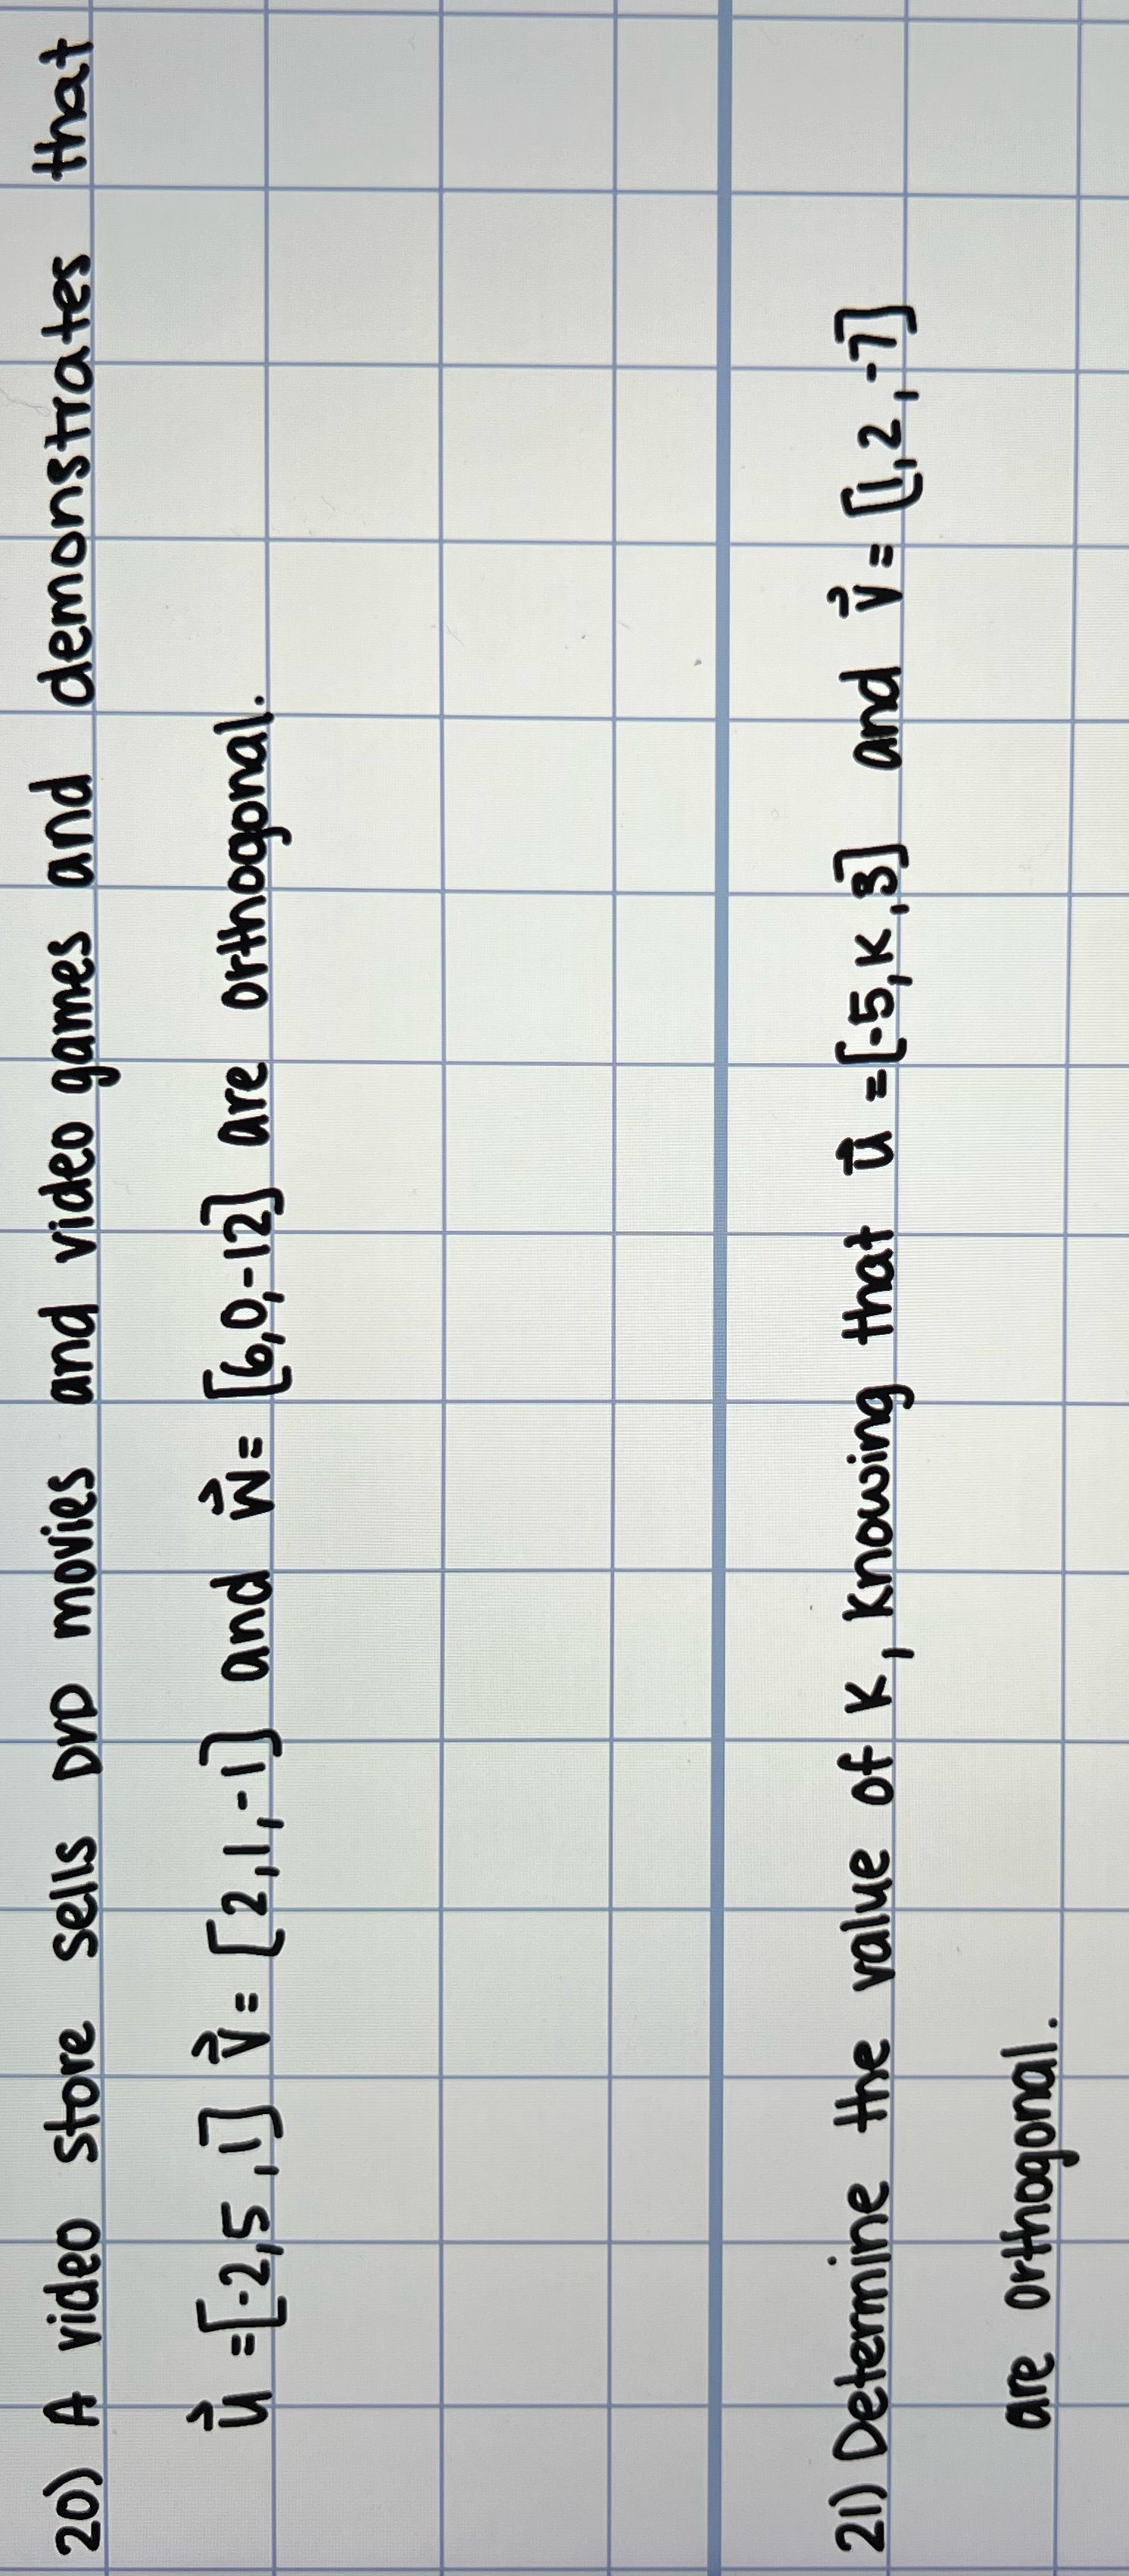 20) A video store sells DVD movies and video games and demonstrates that
u⃗ = [-2,5,1] v⃗ = [2,1,-1] and w⃗ = [6,0,-12] are orthogonal.
21) Determine the value of K, Knowing that u⃗ = [-5,K,3] and v⃗ = [1,2,-7]
are orthogonal.